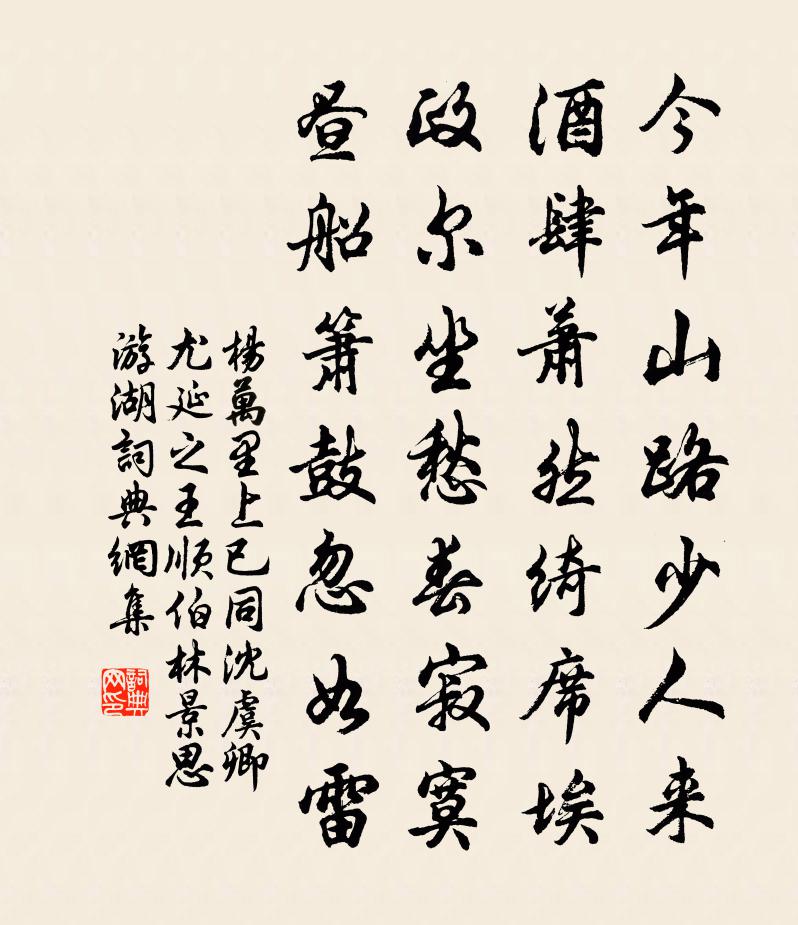 今年山路少人来
酒肆蕭然綺席埃
政尔坐愁春寂寞
昼船簫鼓忽如雷
楊萬里上巳同沈虞卿
尤延之王順伯林景思
游湖詞典網集
詞典
网印